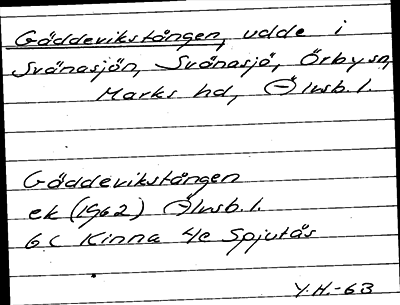 Gäddevikstången, udde i
Svånasjön, Svånasjö, Örby sn,
Marks hd, Älvsb. l.
Gäddevikstången
ek (1962) Älvsb. l.
6 C Kinna 4e Spjutås
Y.H.-63